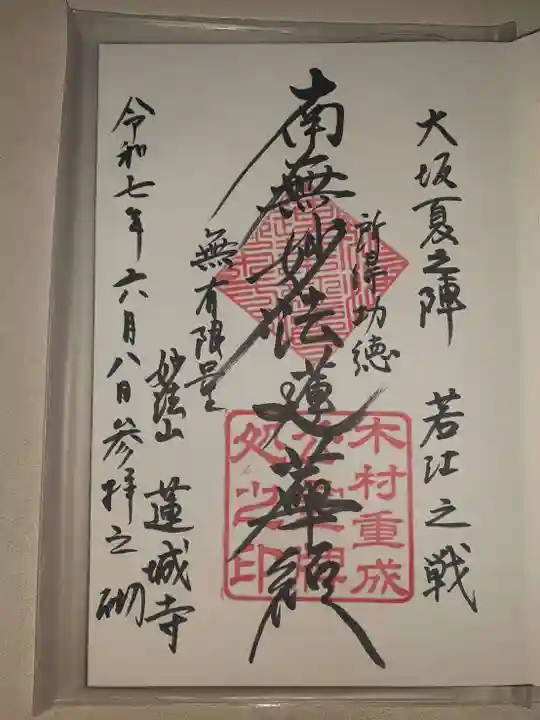 大坂夏之陣 若江之戦
所得功徳
南無妙法蓮華経
無有限量
妙法山 蓮城寺
令和七年六月八日参拝之砌
木村重成
処
印